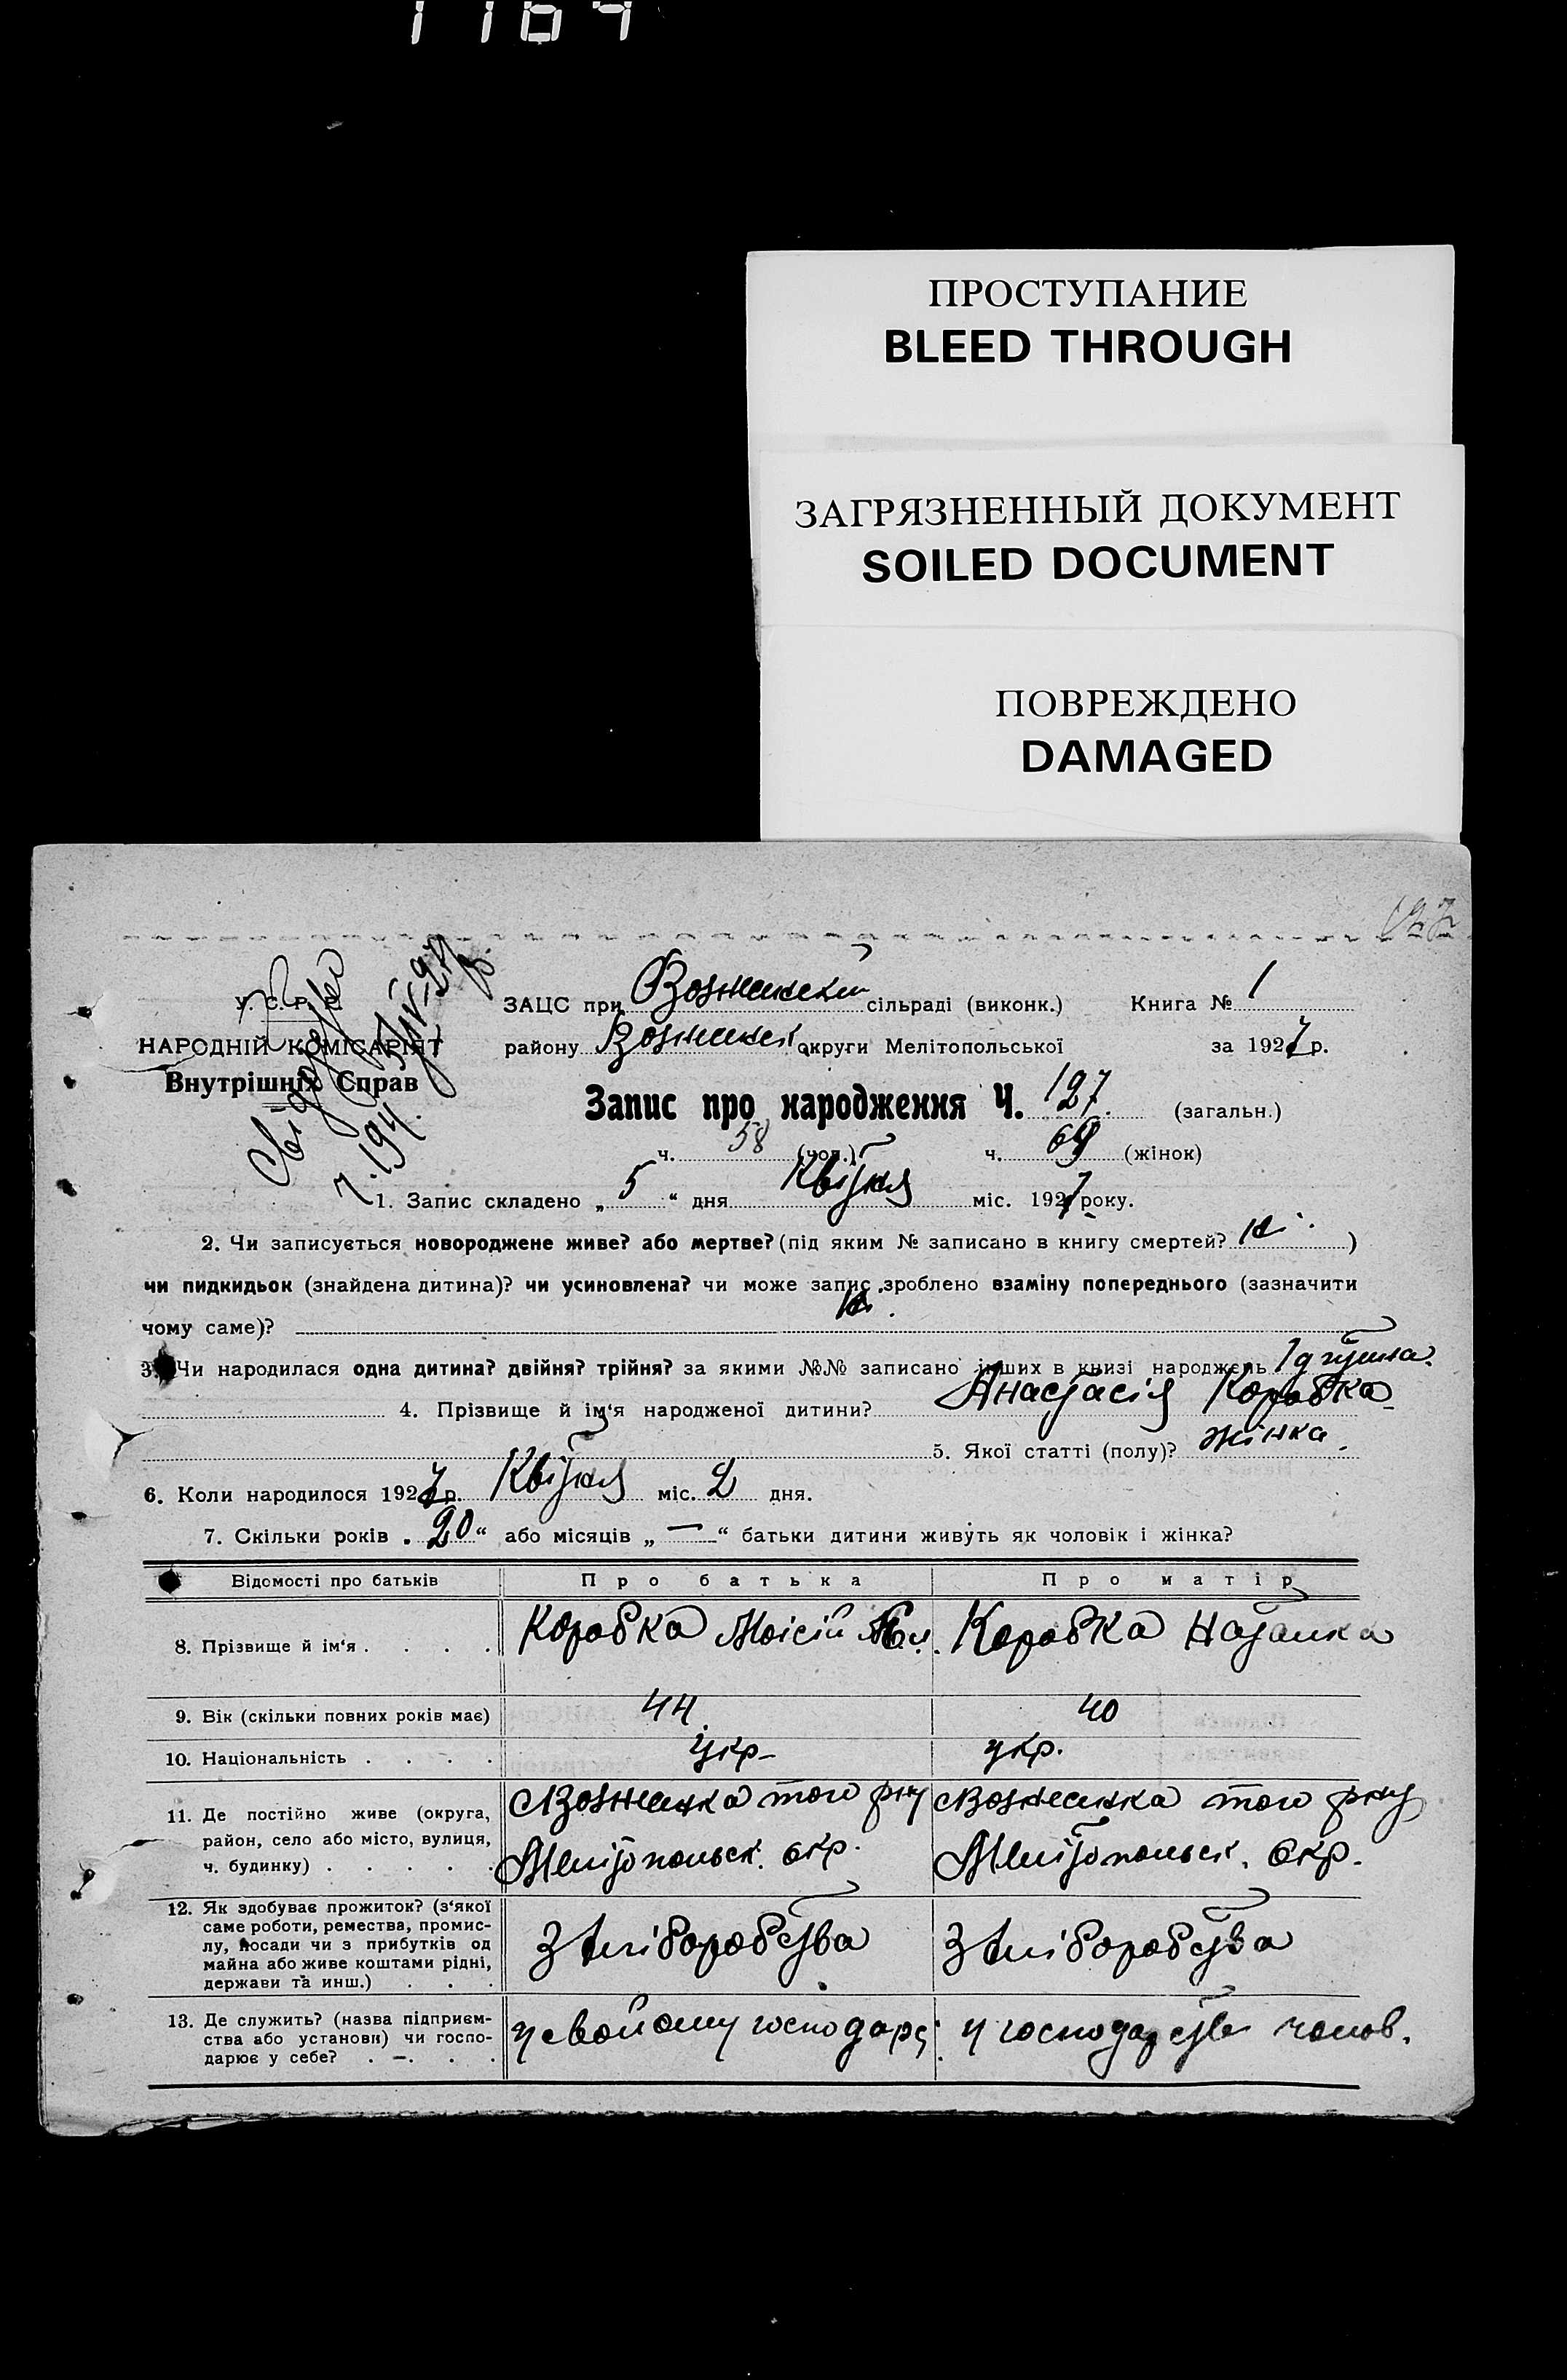 1164
ПРОСТУПАНИЕ
BLEED THROUGH
ЗАГРЯЗНЕННЫЙ ДОКУМЕНТ
SOILED DOCUMENT
ПОВРЕЖДЕНО
DAMAGED
У. С. Р. Р.
НАРОДНІЙ КОМІСАРІЯТ
Внутрішніх Справ
ЗАЦС при сільраді (виконк.) Книга № 1
району округи Мелітопольської за 1927 р.
Запис про народження Ч. 127. (загальн.)
ч. 58 (чол.) ч. 69 (жінок)
1. Запис складено „ 5 “ дня Квітня міс. 1927 року.
2. Чи записується новороджене живе? або мертве? (під яким № записано в книгу смертей? )
чи пидкидьок (знайдена дитина)? чи усиновлена? чи може запис зроблено взаміну попереднього (зазначити
чому саме)?
3. Чи народилася одна дитина? двійня? трійня? за якими №№ записано інших в книзі народжень 1 душа.
4. Прізвище й ім‘я народженої дитини? Анастасія Коробка
5. Якої статті (полу)? жінка.
6. Коли народилося 1927 р. Квітня міс. 2 дня.
7. Скільки років „ 20 “ або місяців „ — “ батьки дитини живуть як чоловік і жінка?
Відомості про батьків Про батька Про матір
8. Прізвище й ім‘я . . . . Коробка Мойсій Коробка Наталка
9. Вік (скільки повних років має) 44. 40
10. Національність . . . . Укр- укр.
11. Де постійно живе (округа, Вознесенка того р-ну Вознесенка того р-ну
район, село або місто, вулиця,
ч. будинку) . . . . . Мелітопольск. окр. Мелітопольск. Окр.
12. Як здобуває прожиток? (з‘якої
саме роботи, ремества, промис-
лу, посади чи з прибутків од З хліборобства З хліборобства
майна або живе коштами рідні,
держави та инш.) . . .
13. Де служить? (назва підприєм- у свойому господарс у господарстве чолов.
ства або установи) чи госпо-
дарює у себе? . — . . .